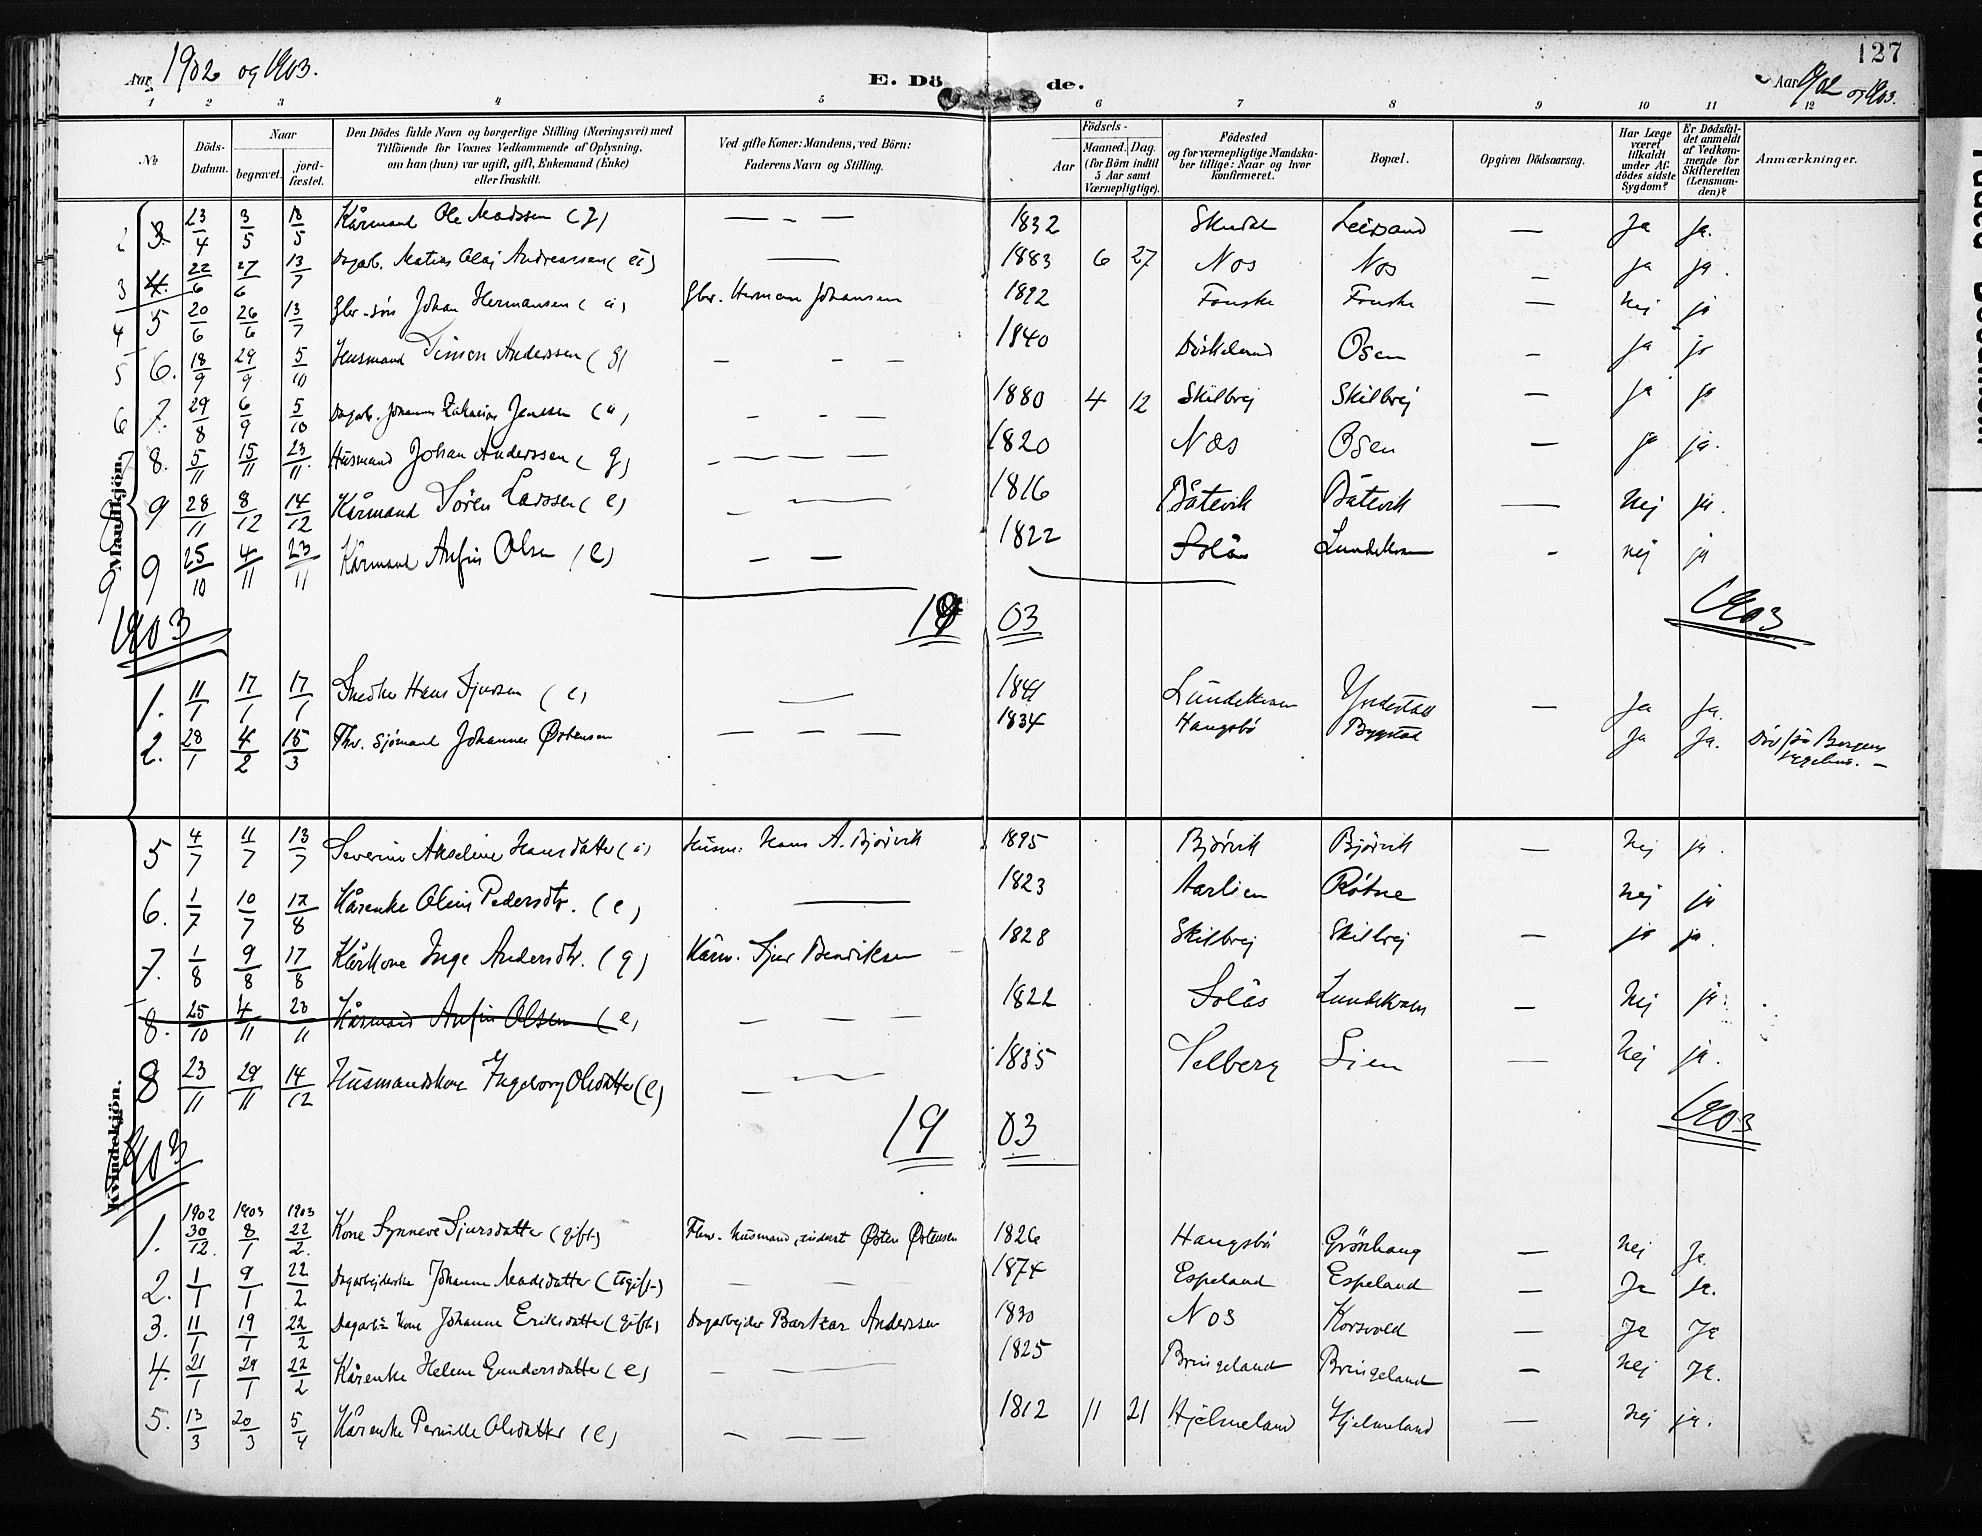 127
Aar 1902 og 1903.
E. Dö de.
Aar 1902 og 1903.
1 2 3 4 5 6 7 8 9 10 11 12
No
Döds-Datum.
Naar
begravet.
jord-fæstet.
Den Dödes fulde Navn og borgerlige Stilling (Næringsvei) med
Tilföiende for Voxnes Vedkommende af Oplysning,
om han (hun) var ugift, gift, Enkemand (Enke)
eller fraskilt.
Ved gifte Koner: Mandens, ved Börn:
Faderens Navn og Stilling.
Födsels-
Aar
Maaned. Dag.
(for Börn indtil
5 Aar samt
Værnepligtige).
Födested
og for værnepligtige Mandska-
ber tillige: Naar og hvor
konfirmeret.
Bopæl.
Opgiven Dödsaarsag.
Har Læge
været
tilkaldt
under Af-
dödes sidste
Sygdom?
Er Dödsfal-
det anmeldt
af Vedkom-
mende for
Skifteretten
(Lensman-
den)?
Anmærkninger.
Mandkjön.
2 3. 23/4 3/5 18/5 Kårmand Ole Madssen (g) — - — 1832 Skudal — Ja Ja.
3 4. 22/6 27/6 13/7 Dagarb. Matias Olaj Andreassen (u) — 1883 6 27 Nos Nos — ja ja.
4 5 20/6 26/6 13/7 Gbr.-søn Johan Hermansen (u) Gbr. Herman Johansen 1892 Fonske Fonske — Nej ja
5 6. 18/9 29/9 5/10 Husmand Simon Anderssen (g) — - — 1840 Döskeland Osen - ja ja
6 7. 29/8 6/9 5/10 Dagarb. Johannes Zakarias Jenssen (u) - - — 1880 4 12 Skilbrej Skilbrej — ja ja
7 8. 5/11 15/11 23/11 Husmand Johan Anderssen (g) - — — — 1820 Nos Osen — ja ja.
8 9 28/11 8/12 14/12 Kårmand Sören Larssen (e) - — 1816 Båtevik Båtevik — Nej ja.
9 9 25/10 4/11 23/11 Kårmand Anfin Olsen (e) — — 1822 Solås Lundekvam - nej ja
1903 19 03 1903
1. 11/1 17/1 17/1 Snedker Hans Sjurssen (e) — 1841 Lundekvam Yndestad — Ja Ja.
2. 28/1 4/2 15/3 Fhv. Sjømand Johannes Østensen — — — 1834 Haugsbö Bygstad Ja Ja. Död på Bergens sygehus. —
Kvindekjön.
5 4/7 11/7 13/7 Severine Akseline Hansdatter (u) Husm: Hans A. Bjørvik 1895 Bjørvik Bjørvik — Nej ja.
6. 1/7 10/7 17/8 Kårenke Oline Pedersdtr. (e) — 1823 Aarlien Røtne nej ja
7. 1/8 9/8 17/8 Kårkone Inge Andersdtr. (g) Kårm. Sjur Bendiksen 1828 Skilbrej Skilbrej — ja ja.
8. 25/10 4/11 23/11 Kårmand Anfin Olsen (e) — — — 1822 Solås Lundekvam — Nej ja.
8 23/11 29/11 14/12 Husmandskone Ingeborg Olsdatter (e) — — 1835 Selberg Lien — Nej ja.
1903 19 03 1903
1902 1903 1903
1. 30/12. 8/1 22/2. Kone Synneve Sjursdatter (gift) Fhv. husmand, Østen Østensen 1826 Haugsbö Grönhaug — Nej Ja.
2. 1/1 9/1 22/2 Dagarbejderske Johanne Madsdatter (Ugift) — — 1874 Espeland Espeland — Ja Ja.
3. 11/1 19/1 22/2 Dagarb. kone Johanne Eriksdatter (gift) Dagarbejder Bartzar Anderssen 1830 Nos Korsvold — Ja Ja
4. 21/1 29/1 22/2 Kårenke Helene Gundersdatter (e) - — 1825 Bringeland Bringeland — Nej Ja.
5. 13/3 20/3 5/4 Kårenke Pernille Olsdatter (e) - — — 1812 11 21 Hjelmeland Hjelmeland — Nej ja.